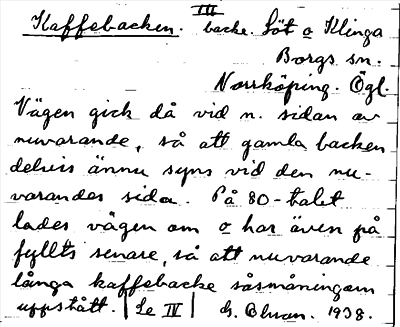 III
Kaffebacken. backe. Löt o Klinga
Borgs sn.
Norrköping. Ögl.
Vägen gick då vid n. sidan av
nuvarande, så att gamla backen
delvis ännu syns vid den nu-
varandes sida. På 80-talet
lades vägen om o har även på
fyllts senare, så att nuvarande
långa kaffebacke såsmåningom
uppstått. | Se IV | G. 1938.